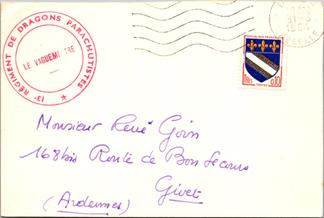 13e RÉGIMENT DE DRAGONS PARACHUTISTES
LE VAGUEMESTRE
RÉPUBLIQUE FRANÇAISE
0,10
Monsieur René Goin
168bis Route de Bon Secours
Givet
(Ardennes)